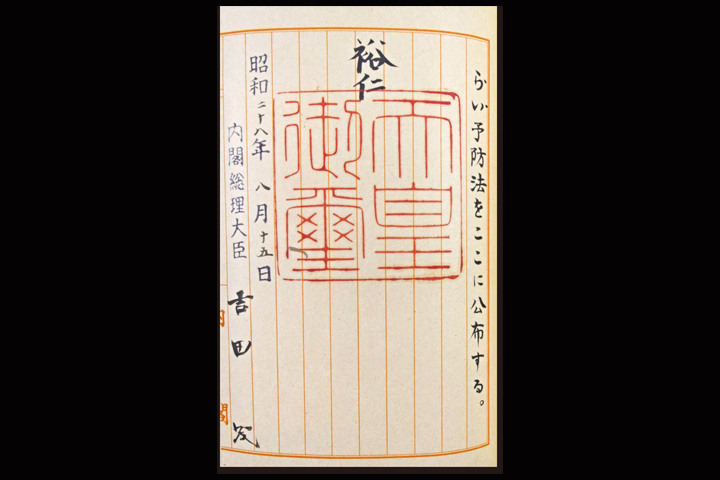 らい予防法をここに公布する。
裕仁
天皇
御璽
昭和二十八年八月十五日
内閣総理大臣 吉田茂
内閣